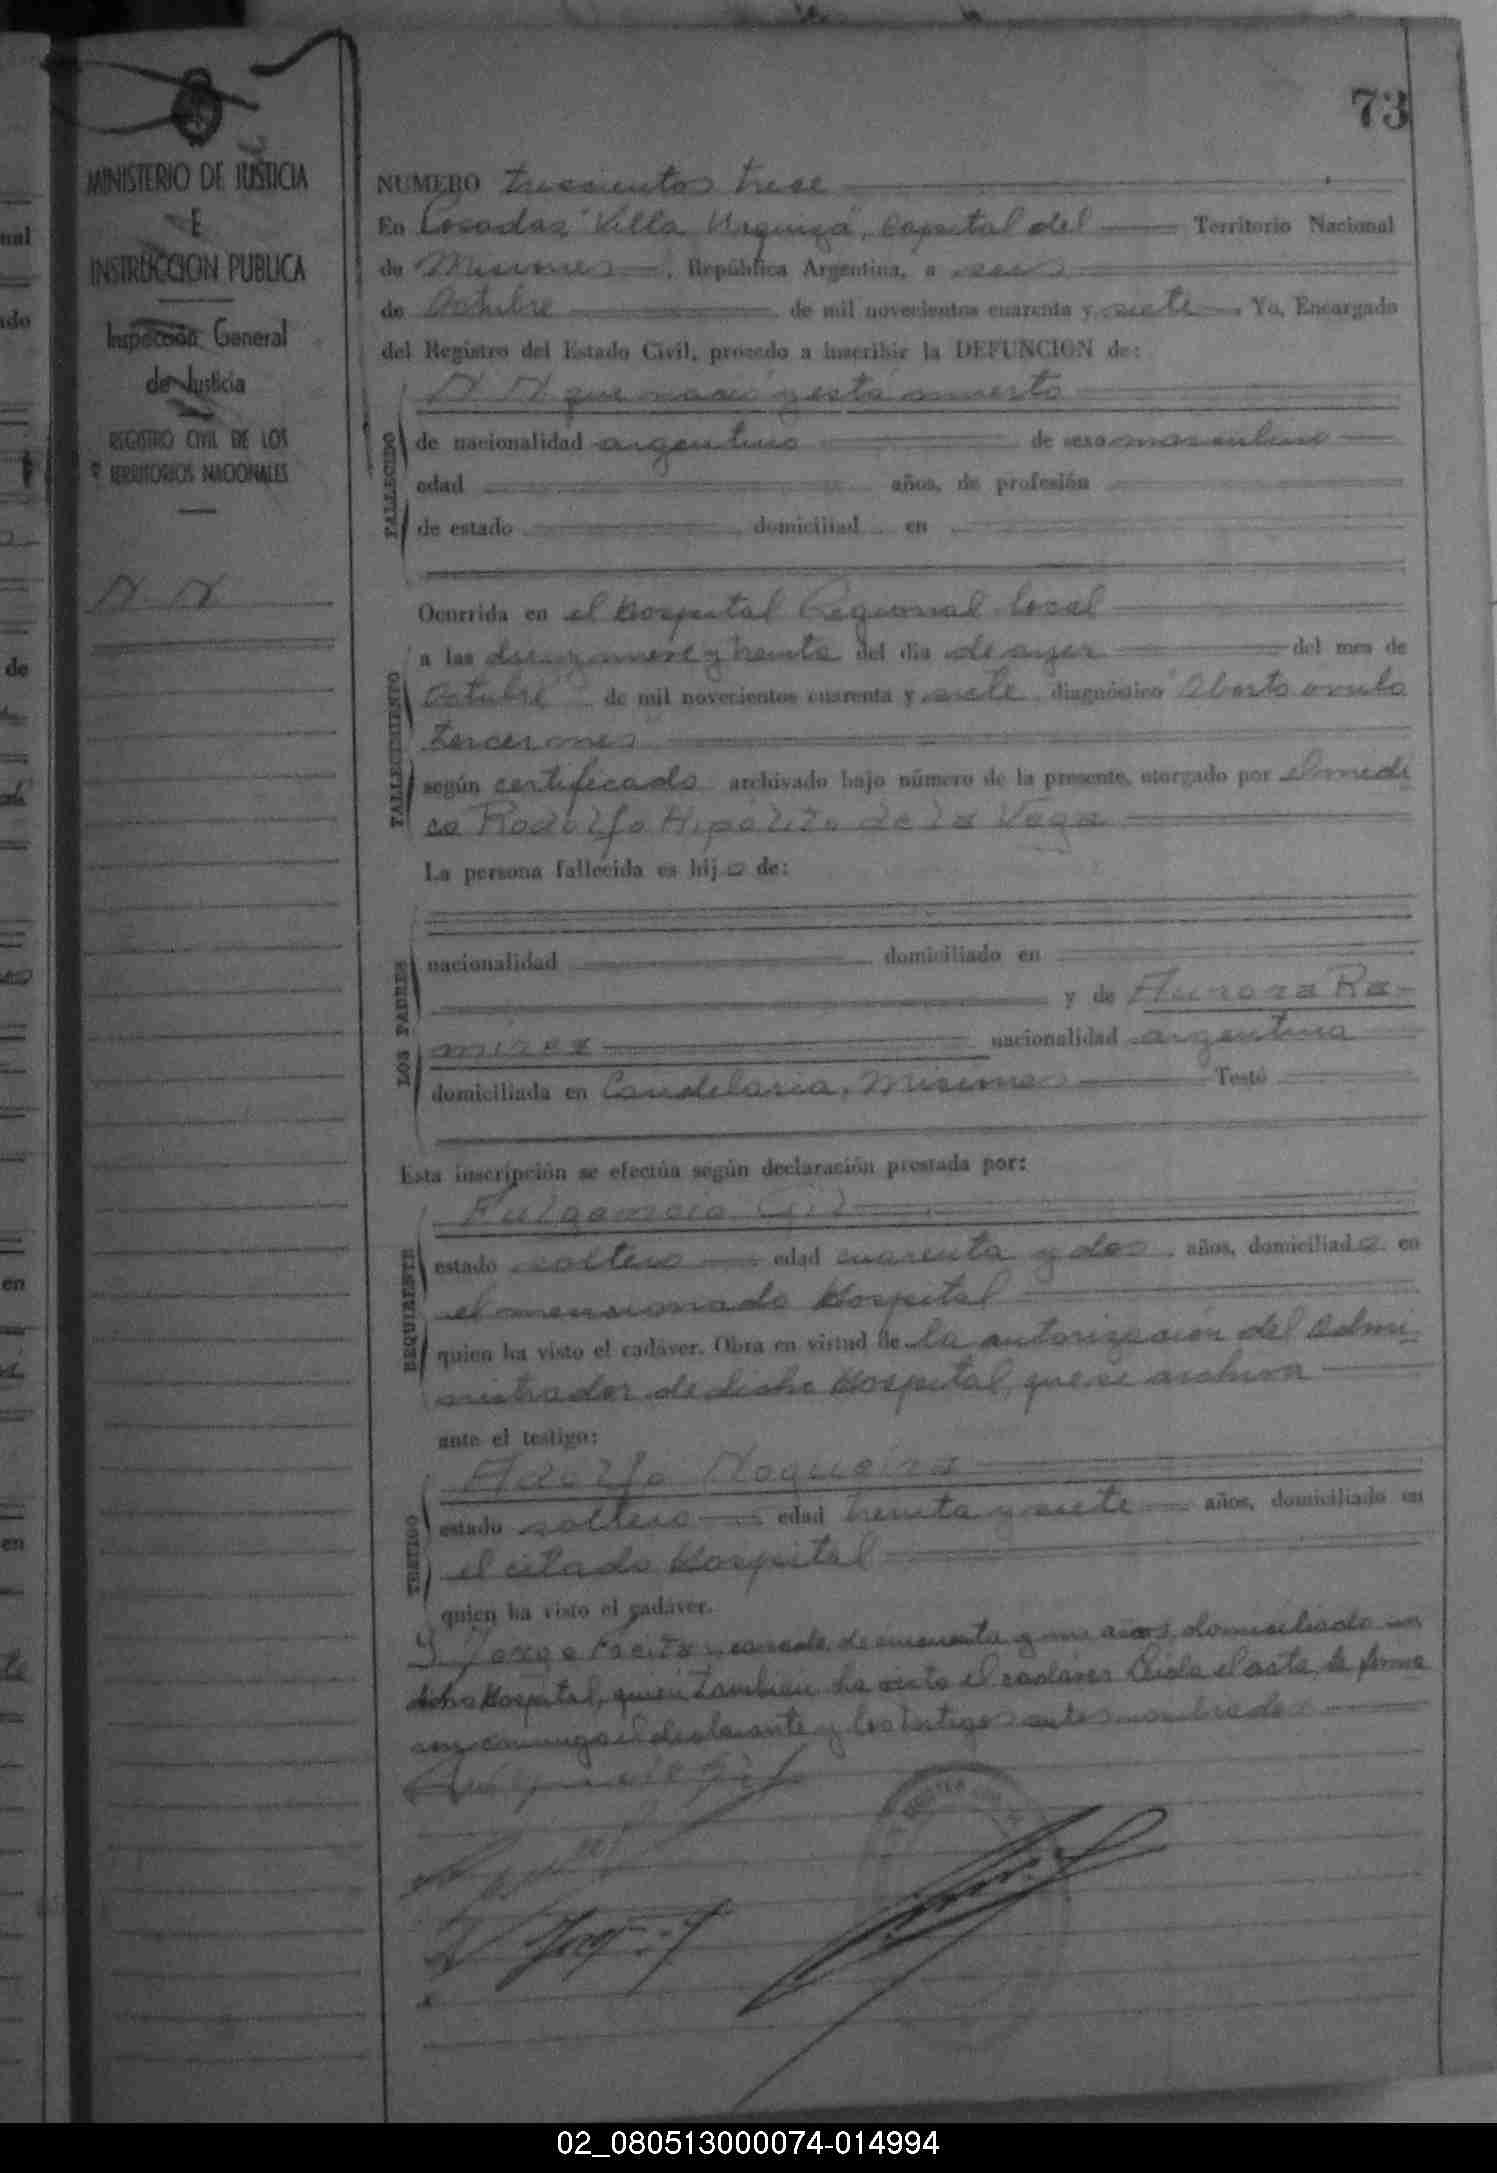 73
MINISTERIO DE JUSTICIA
E
INSTRUCCION PUBLICA
Inspección General
de Justicia
REGISTRO CIVIL DE LOS
TERRITORIOS NACIONALES
N. N
NUMERO trescientos trece
En Posadas "Villa Urquiza", Capital del Territorio Nacional
de Misiones, República Argentina, a seis
de Octubre de mil novecientos cuarenta y siete. Yo, Encargado
del Registro del Estado Civil, procedo a inscribir la DEFUNCION de:
FALLECIDO
N. N que nació y está muerto
de nacionalidad argentino de sexo masculino
edad años, de profesión
de estado domiciliad en
Ocurrida en el Hospital Regional local
FALLECIMIENTO
a las diez y nueve y treinta del día de ayer del mes de
Octubre de mil novecientos cuarenta y siete diagnóstico Aborto
tercer mes
según certificado archivado bajo número de la presente, otorgado por el médi
co Rodolfo Hipólito de la Vega
La persona fallecida es hijo de:
LOS PADRES
nacionalidad domiciliado en
y de Aurora Ra-
mirez nacionalidad argentina
domiciliada en Candelaria, Misiones Testó
Esta inscripción se efectúa según declaración prestada por:
REQUIRENTE
Fulgencio Gil
estado soltero edad cuarenta y dos, años, domiciliado en
el mensionado Hospital
quien ha visto el cadáver. Obra en virtud de la autorización del Admi
nistrador de dicho Hospital, que se archiva
ante el testigo:
TESTIGO
Adolfo Nogueira
estado soltero edad treinta y siete años, domiciliado en
el citado Hospital
quien ha visto el cadáver.
y Jorge casado, de cincuenta y un años, domiciliado en
dicho Hospital, quien tambien ha visto el cadáver. Leida el acta, la firma
conmigo el declarante y los testigos antes nombrados
02_080513000074-014994